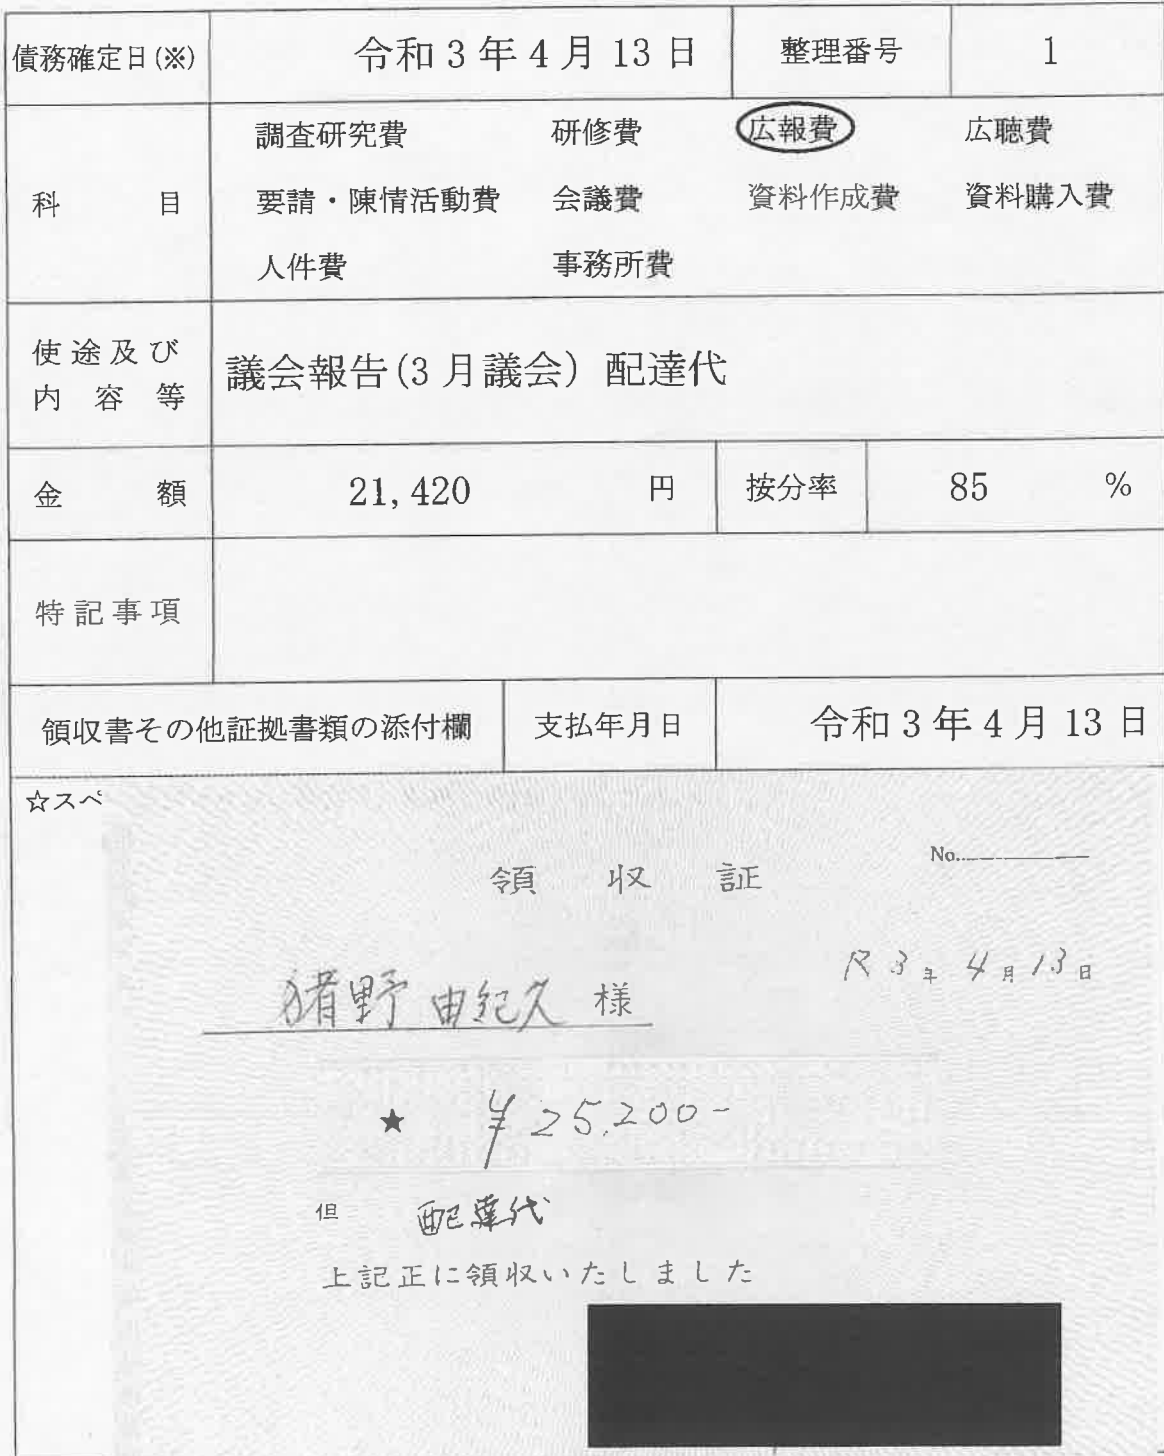 債務確定日(※) 令和3年4月13日 整理番号 1
科 目
調査研究費 研修費 広報費 広聴費
要請・陳情活動費 会議費 資料作成費 資料購入費
人件費 事務所費
使途及び
内容等
議会報告(3月議会) 配達代
金 額 21,420 円 按分率 85 %
特記事項
領収書その他証拠書類の添付欄 支払年月日 令和3年4月13日
☆スペ
No.
領 収 証
R3年4月13日
猪野 由紀久 様
★ ¥25,200-
但 配達代
上記正に領収いたしました